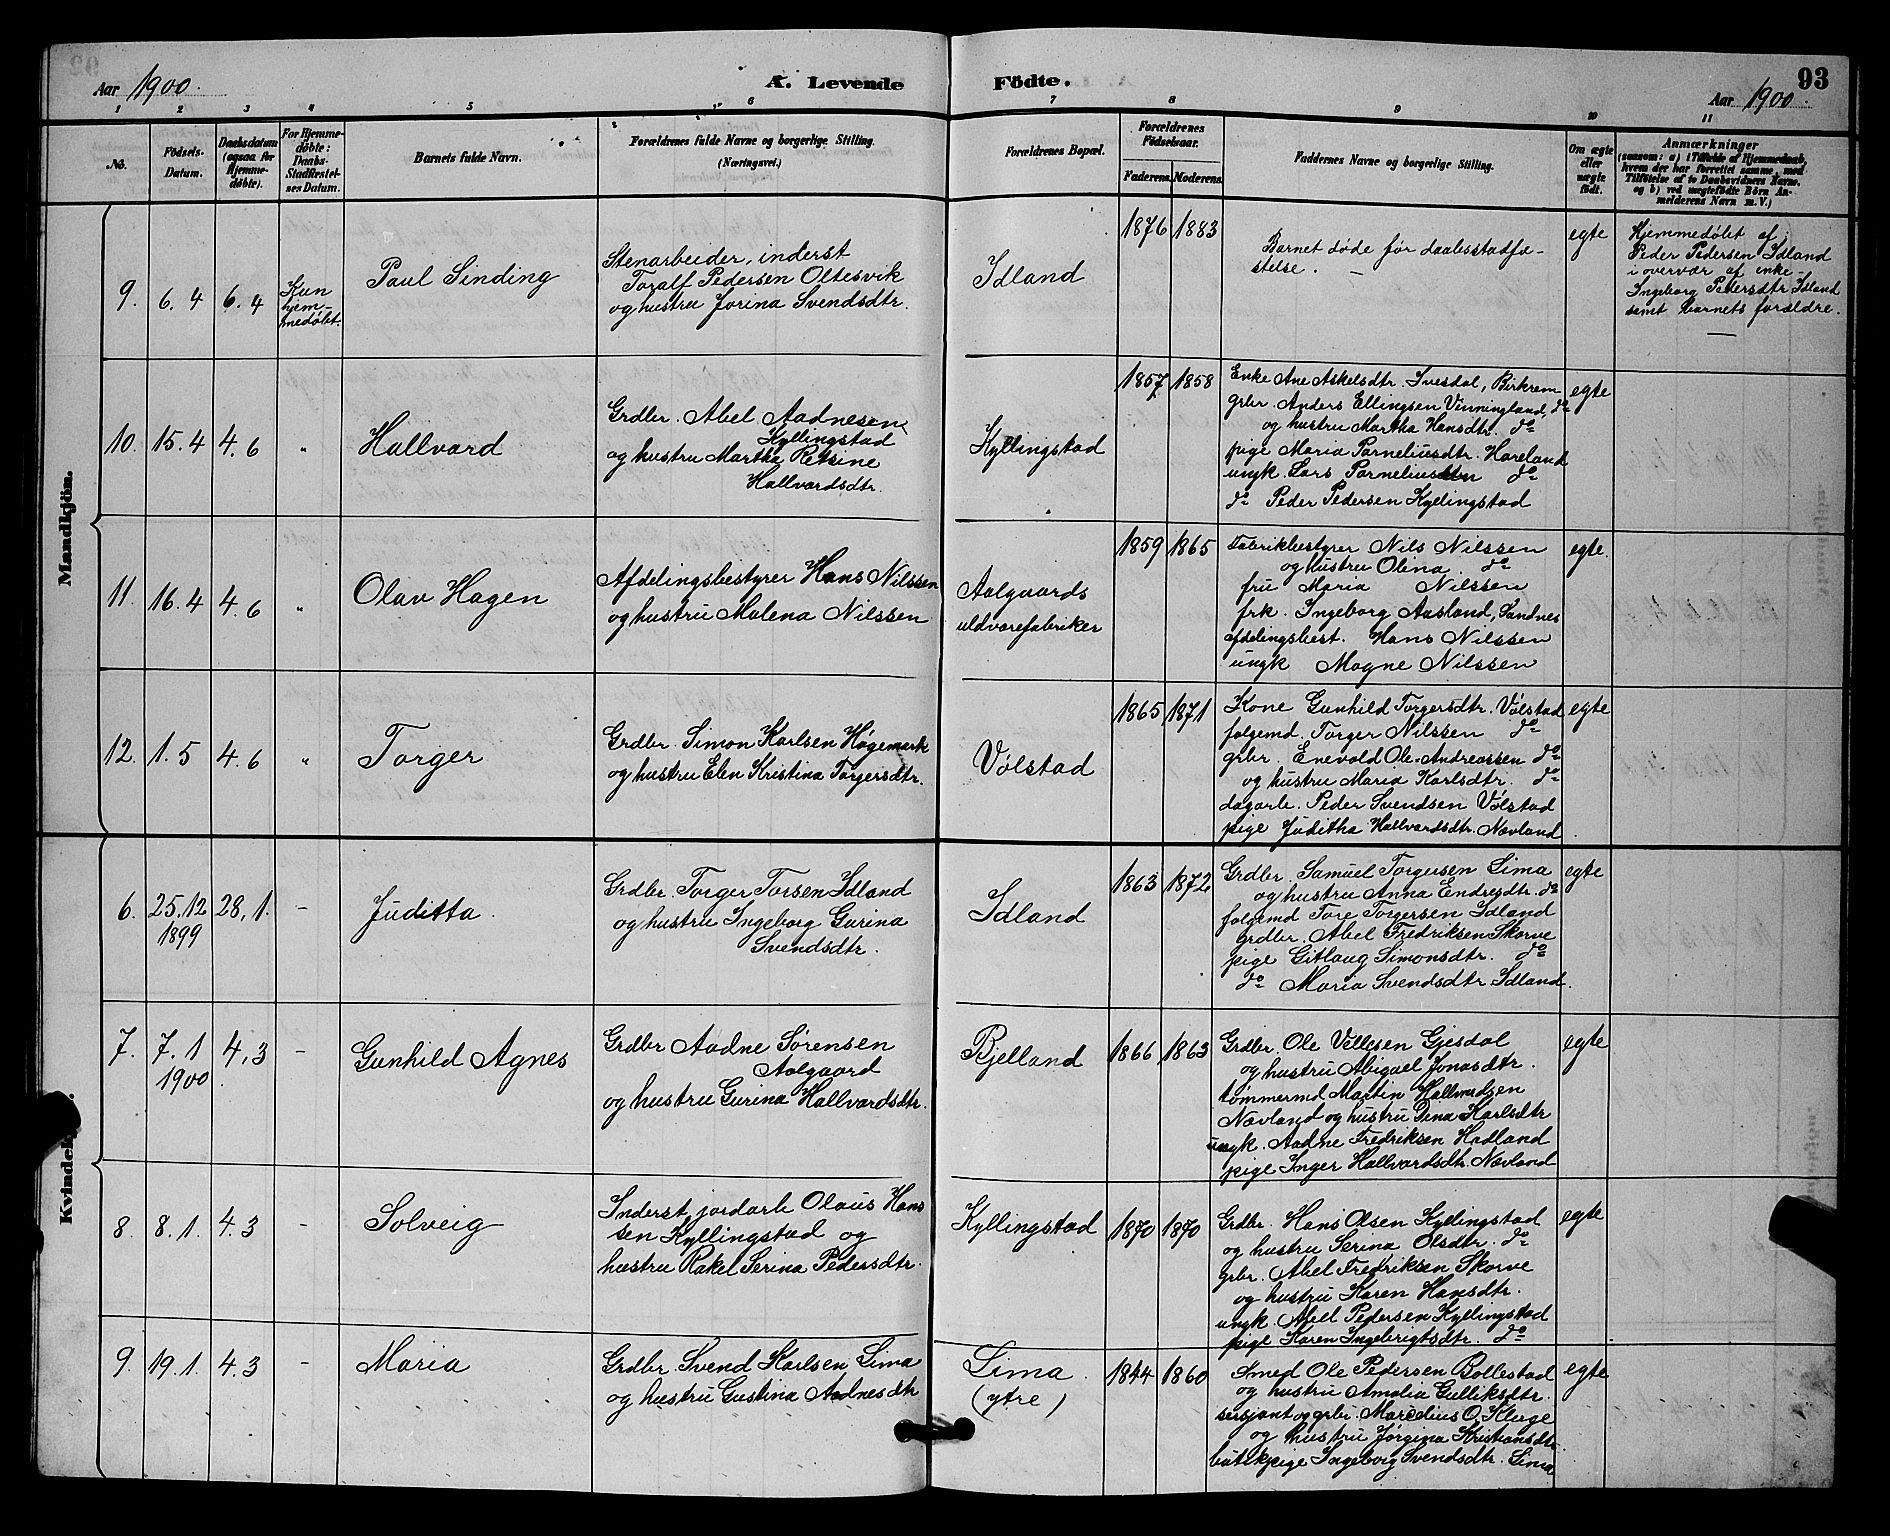 93
Aar 1900. A. Levende Födte. Aar 1900.
1 2 3 4 5 6 7 8 9 10 11
No.
Födsels-
Datum.
Daabsdatum
(ogsaa for
Hjemme-
döbte).
For Hjemme-
döbte:
Daabs-
Stadfæstel-
ses Datum.
Barnets fulde Navn.
Forældrenes fulde Navne og borgerlige Stilling.
(Næringsvei.)
Forældrenes Bopæl.
Forældrenes
Födselsaar.
Faderens. Moderens.
Faddernes Navne og borgerlige Stilling.
Om ægte
eller
uægte
födt.
Anmærkninger
(saasom: a) i Tilfælde af Hjemmedaab,
hvem der har forrettet samme, med
Tilföielse af to Daabsvidners Navne,
og b) ved uægtefödte Börn An-
melderens Navn m. V.)
Mandkjön.
9. 6.4 6.4
Kun
hjem-
medøbt.
Paul Sinding
Stenarbeider, inderst
Toralf Pedersen Oltesvik
og hustru Jorina Svendsdtr.
Idland
1876 1883
Barnet døde før daabsstadfæ-
stelse. —
egte
Hjemmedøbt af
Peder Pedersen Idland
i overvær af enke
Ingeborg Pedersdtr Idland
samt barnets forældre.
10. 15.4 4.6 "
Hallvard
Grdbr. Abel Aadnesen
Kyllingstad
og hustru Martha Retsine
Hallvardsdtr.
Kyllingstad
1857 1858
Enke Ane Askelsdtr. Ivesdal, Birkrem
grbr. Anders Ellingsen Vinningland, do
og hustru Martha Hansdtr. do
pige Maria Torneliusdtr. Hareland
ungk. Lars Torneliussen do
do Peder Pedersen Kyllingstad
egte
11. 16.4 4.6 "
Olav Hagen
Afdelingsbestyrer Hans Nilssen
og hustru Malena Nilssen
Aalgaards
uldvarefabriker
1859 1865
Fabrikbestyrer Nils Nilssen
og hustru Olena do
fru Maria Nilssen
frk. Ingeborg Aasland, Sandnes
afdelingsbest. Hans Nilssen
ungk Magne Nilssen
egte.
12. 1.5 4.6 "
Torger
Grdbr. Simon Karlsen Høgemark
og hustru Elen Kristina Torgersdtr.
Vølstad
1865 1871
Kone Gunhild Torgersdtr. Vølstad
folgemd. Torger Nilssen do
grbr. Enevold Ole-Andreassen do
og hustru Maria Karlsdtr. do
dagarb. Peder Svendsen Vølstad
pige Juditha Hallvardsdtr. Nævland
egte
Kvindekjön.
6. 25.12 28.1. –
1899
Juditta.
Grdbr. Torger Torsen Idland
og hustru Ingeborg Gurina
Svendsdtr.
Idland
1863 1872
Grdbr. Samuel Torgersen Lima
og hustru Anna Endresdtr. do
folgemd Tore Torgersen Idland
grdbr. Abel Fredriksen Skorve
pige Gitlaug Simonsdtr. do
do Maria Svendsdtr Idland.
egte
7. 7.1 4.3 –
1900
Gunhild Agnes
Grdbr Aadne Sørensen
Aalgaard
og hustru Gurina Hallvardsdtr.
Bjelland
1866 1863
Grdbr. Ole Villesen Gjesdal
og hustru Abigael Jonasdtr.
tømmermd Martin Hallvardsen
Nævland og hustru Dina Karlsdtr
ungk. Aadne Fredriksen Hadland
pige Inger Hallvardsdtr. Nævland
egte
8. 8.1. 4.3 –
Solveig
Inderst, jordarb Olaus Han
sen Kyllingstad og
hustru Rakel Serina Pedersdtr.
Kyllingstad
1870 1870
Grdbr. Hans Olsen Kyllingstad
og hustru Serina Olsdtr. do
grbr. Abel Fredriksen Skorve
og hustru Karen Hansdtr.
ungk. Abel Pedersen Kyllingstad
pige Karen Ingebrigtsdtr. do
egte
9. 19.1. 4.3 –
Maria
Grdbr. Svend Karlsen Lima
og hustru Gustina Aadnesdtr
Lima.
(ytre)
1844 1860
Smed Ole Pedersen Bollestad
og hustru Amalia Gulliksdtr.
sersjant og grbr. Marcelius O. Kluge
og hustru Jørgina Kristiansdtr
butikpige Ingeborg Svendsdtr. Lima
egte